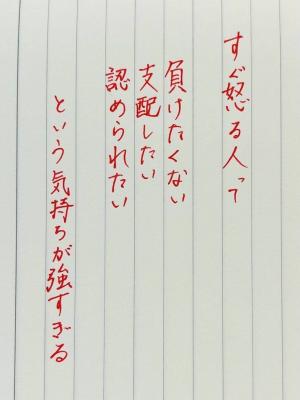 すぐ怒る人って
負けたくない
支配したい
認められたい
という気持ちが強すぎる